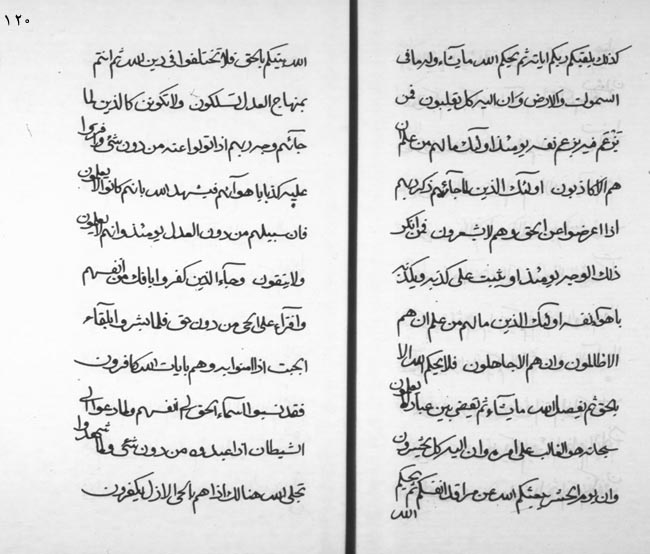 كذلك يلقيكم ربكم اياته ثم يحكم الله ما يشاء وله ما في
السموات والارض وان اليه كل يقلبون فمن
يزعم فيه بزعم نفسه يومئذ اولئك ما لهم من علم ان
هم الا كاذبون اولئك الذين لما جائهم ذكر ربهم
اذا اعرضوا عن الحق وهم لا يشعرون فمن انكر
ذلك الوجه يومئذ او يثبت على كذبه ويكذب
باهواء نفسه اولئك الذين ما لهم من علم ان هم
الا ظالمون وان هم الا جاهلون فلا يحكم الله الا
بالحق ثم يفصل الله ما يشاء ثم يقضي بين عباده
سبحانه هو الغالب على امره وان اليه كل يحشرون
وان يوم الحشر يبعثكم الله عن مراقد انفسكم ثم يحكم
الله
١٢٠
الله بينكم بالحق فلا تختلفوا في دين الله ثم انتم
بمنهاج العدل تسلكون ولا تكونن كالذين لما
جائهم وجه ربهم اذا تولوا عنه من دون شئ وافتروا
عليه كذبا باهوائهم فيشهد الله بانهم كانوا لا يعلمون
فان سبيلهم من دون العدل يومئذ وانهم لا يعلمون
ولا يتقون وجاء الذين كفروا بافك من انفسهم
وافتراء على الحق من دون حق فلما نشروا بلقاء
الجبت اذا امنوا به وهم بايات الله كافرون
فقد نسبوا اسماء الحق الى انفسهم ولما دعوا الى
الشيطان اذا عبدوه من دون شئ ولما شهدوا
تجلى الله هنالك اذا هم بالحق الاول يكفرون